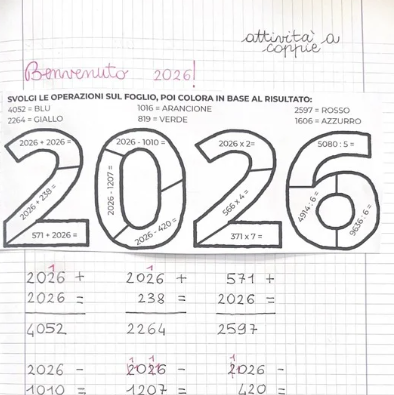 attività a
coppie
Benvenuto 2026!
SVOLGI LE OPERAZIONI SUL FOGLIO, POI COLORA IN BASE AL RISULTATO:
4052 = BLU 1016 = ARANCIONE 2597 = ROSSO
2264 = GIALLO 819 = VERDE 1606 = AZZURRO
2026 + 2026 = 2026 - 1010 = 2026 x 2= 5080 : 5 =
2026 + 238 = 2026 - 1207 = 566 x 4 = 4914 : 6 =
571 + 2026 = 2026 - 420 = 371 x 7 = 9636 : 6 =
1 1
2026 + 2026 + 571 +
2026 = 238 = 2026 =
4052 2264 2597
1 1 1
2026 - 2026 - 2026 -
1010 = 1207 = 420 =